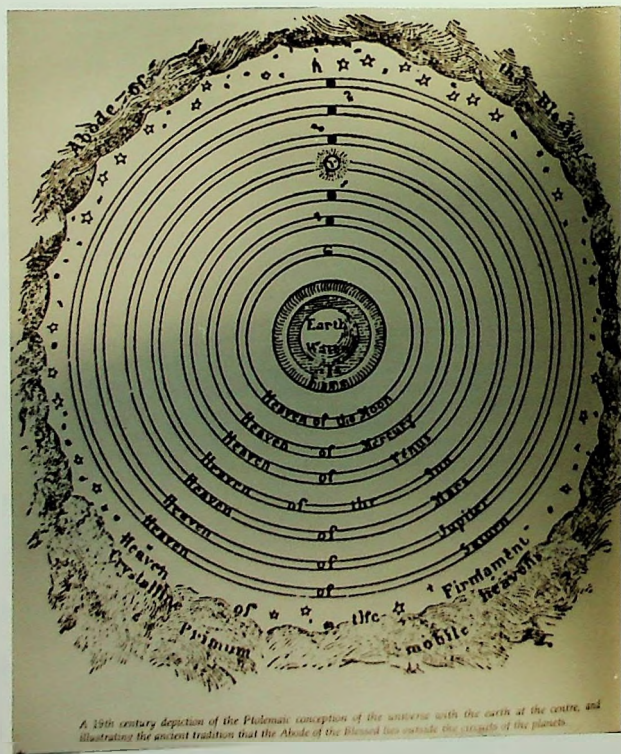 Abode of the Bles
Earth
Heaven of the Moon
Heaven of Mercury
Heaven of Venus
Heaven of the Sun
Heaven of Mars
Heaven of Jupiter
Heaven of Saturn
Heaven of the Firmament
Crystalline Heavens
Primum mobile
A 19th century depiction of the Ptolemaic conception of the universe with the earth at the centre, and
illustrating the ancient tradition that the Abode of the Blessed lies outside the circuits of the planets.